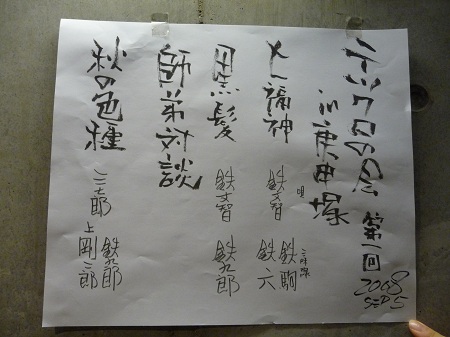 テツクロの会 第一回
in 庚申塚
2008
SEP 5
七福神
唄
鉄文智
三味線
鉄駒
鉄六
黒髪 鉄文智 鉄九郎
師弟対談
秋の色種 三七郎
鉄九郎
上 剛二郎